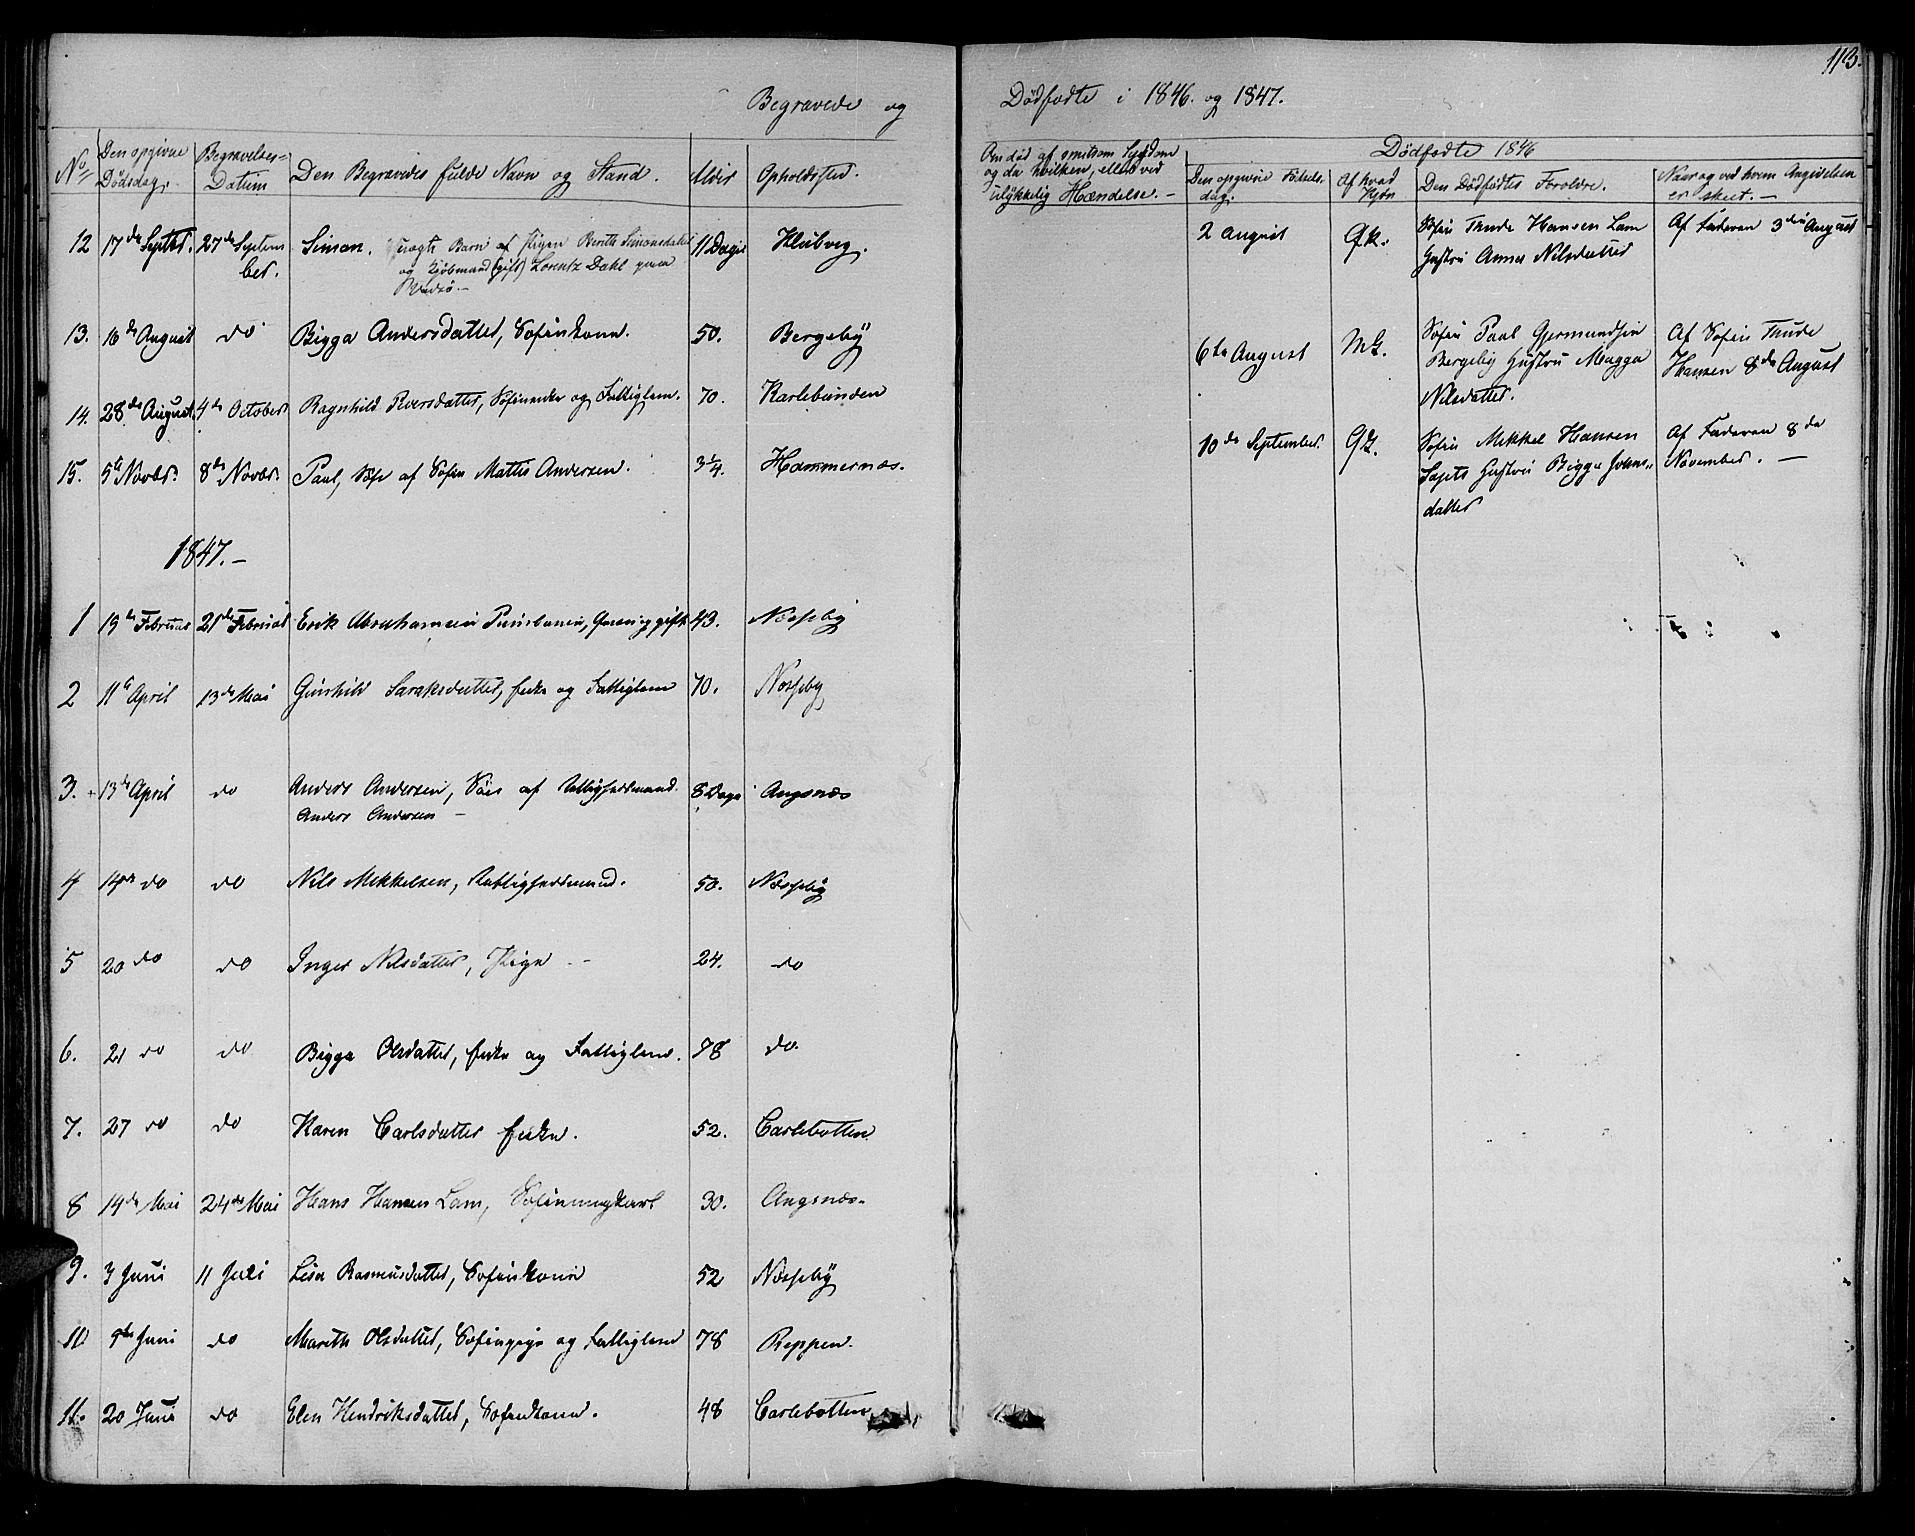 113.
Begravede og Dødfødte i 1846. og 1847.
No
Den opgivne Dødsdag.
Begravelses-Datum
Den Begravedes fulde Navn og Stand.
Alder
Opholdsted.
Om død af smitsom Sygdom
og da hvilken, eller ved
ulykkelig Hændelse. -
Dødfødte 1846
Den opgivne Fødselsdag.
Af hvad Kjøn
Den Dødfødtes Forældre.
Naar og ved hvem Angivelsen
er skeet. -
12 17de Septbr. 27de Septem Simon, uægte Barn af Pigen Berith Simonsdatter 11 Dage Klubvig.
ber. og Kjøbmand (gift) Lorentz Dahl paa
Vadsø. -
13. 16de August do Bigga Andersdatter, Søfinkone. 50. Bergeby
14. 28de August 4de October Ragnhild Iversdatter, Søfinenke og Fattiglem. 70. Karlebunden
15. 5te Novbr. 8de Novbr. Paul, Søn af Søfin Mattis Andersen. 3 1/4. Hammernæs.
1847. -
1 19de Februar 21de Februar Erik Abrahamsen, gift 43. Næsseby
2 11te April 13de Mai Gunhild Saraksdatter, Enke og Fattiglem 70. Næsseby
3. 13de April do Anders Andersen, Søn af Rettighedsmand 8 Dage Angsnæs
Anders Andersen -
4 14de do do Nils Mikkelsen, Rettighedsmand. 50. Næsseby
5 20 do do Inger Nilsdatter, Pige - 24. do
6. 21 do do Bigga Olsdatter, Enke og Fattiglem. 78 do
7. 27 do do Karen Carlsdatter Enke. 52. Carlebotten
8 14de Mai 24de Mai Hans Hansen Lam, Søfinungkarl 30. Angsnæs.
9. 3 Juni 11 Juli Lisa Rasmusdatter, Søfinkone 52 Næsseby
10 9de Juni do Marith Olsdatter, Søfinpige og Fattiglem 78 Reppen.
11. 20 Juni do Elen Hendriksdatter, Søfinkone. 48 Carlebotten
2 August Qk. Søfin Thude Hansen Lam Af Faderen 3die August
Hustru Anna Nilsdatter
6te August MK. Søfin Paul Gjermundsen Af Søfin Thude
Bergeby Hustru Magga Hansen 8de August
Nilsdatter.
10de September. QK. Søfin Mikkel Hansen Af Faderen 8de
Hustru Bigga Johns- November. -
datter